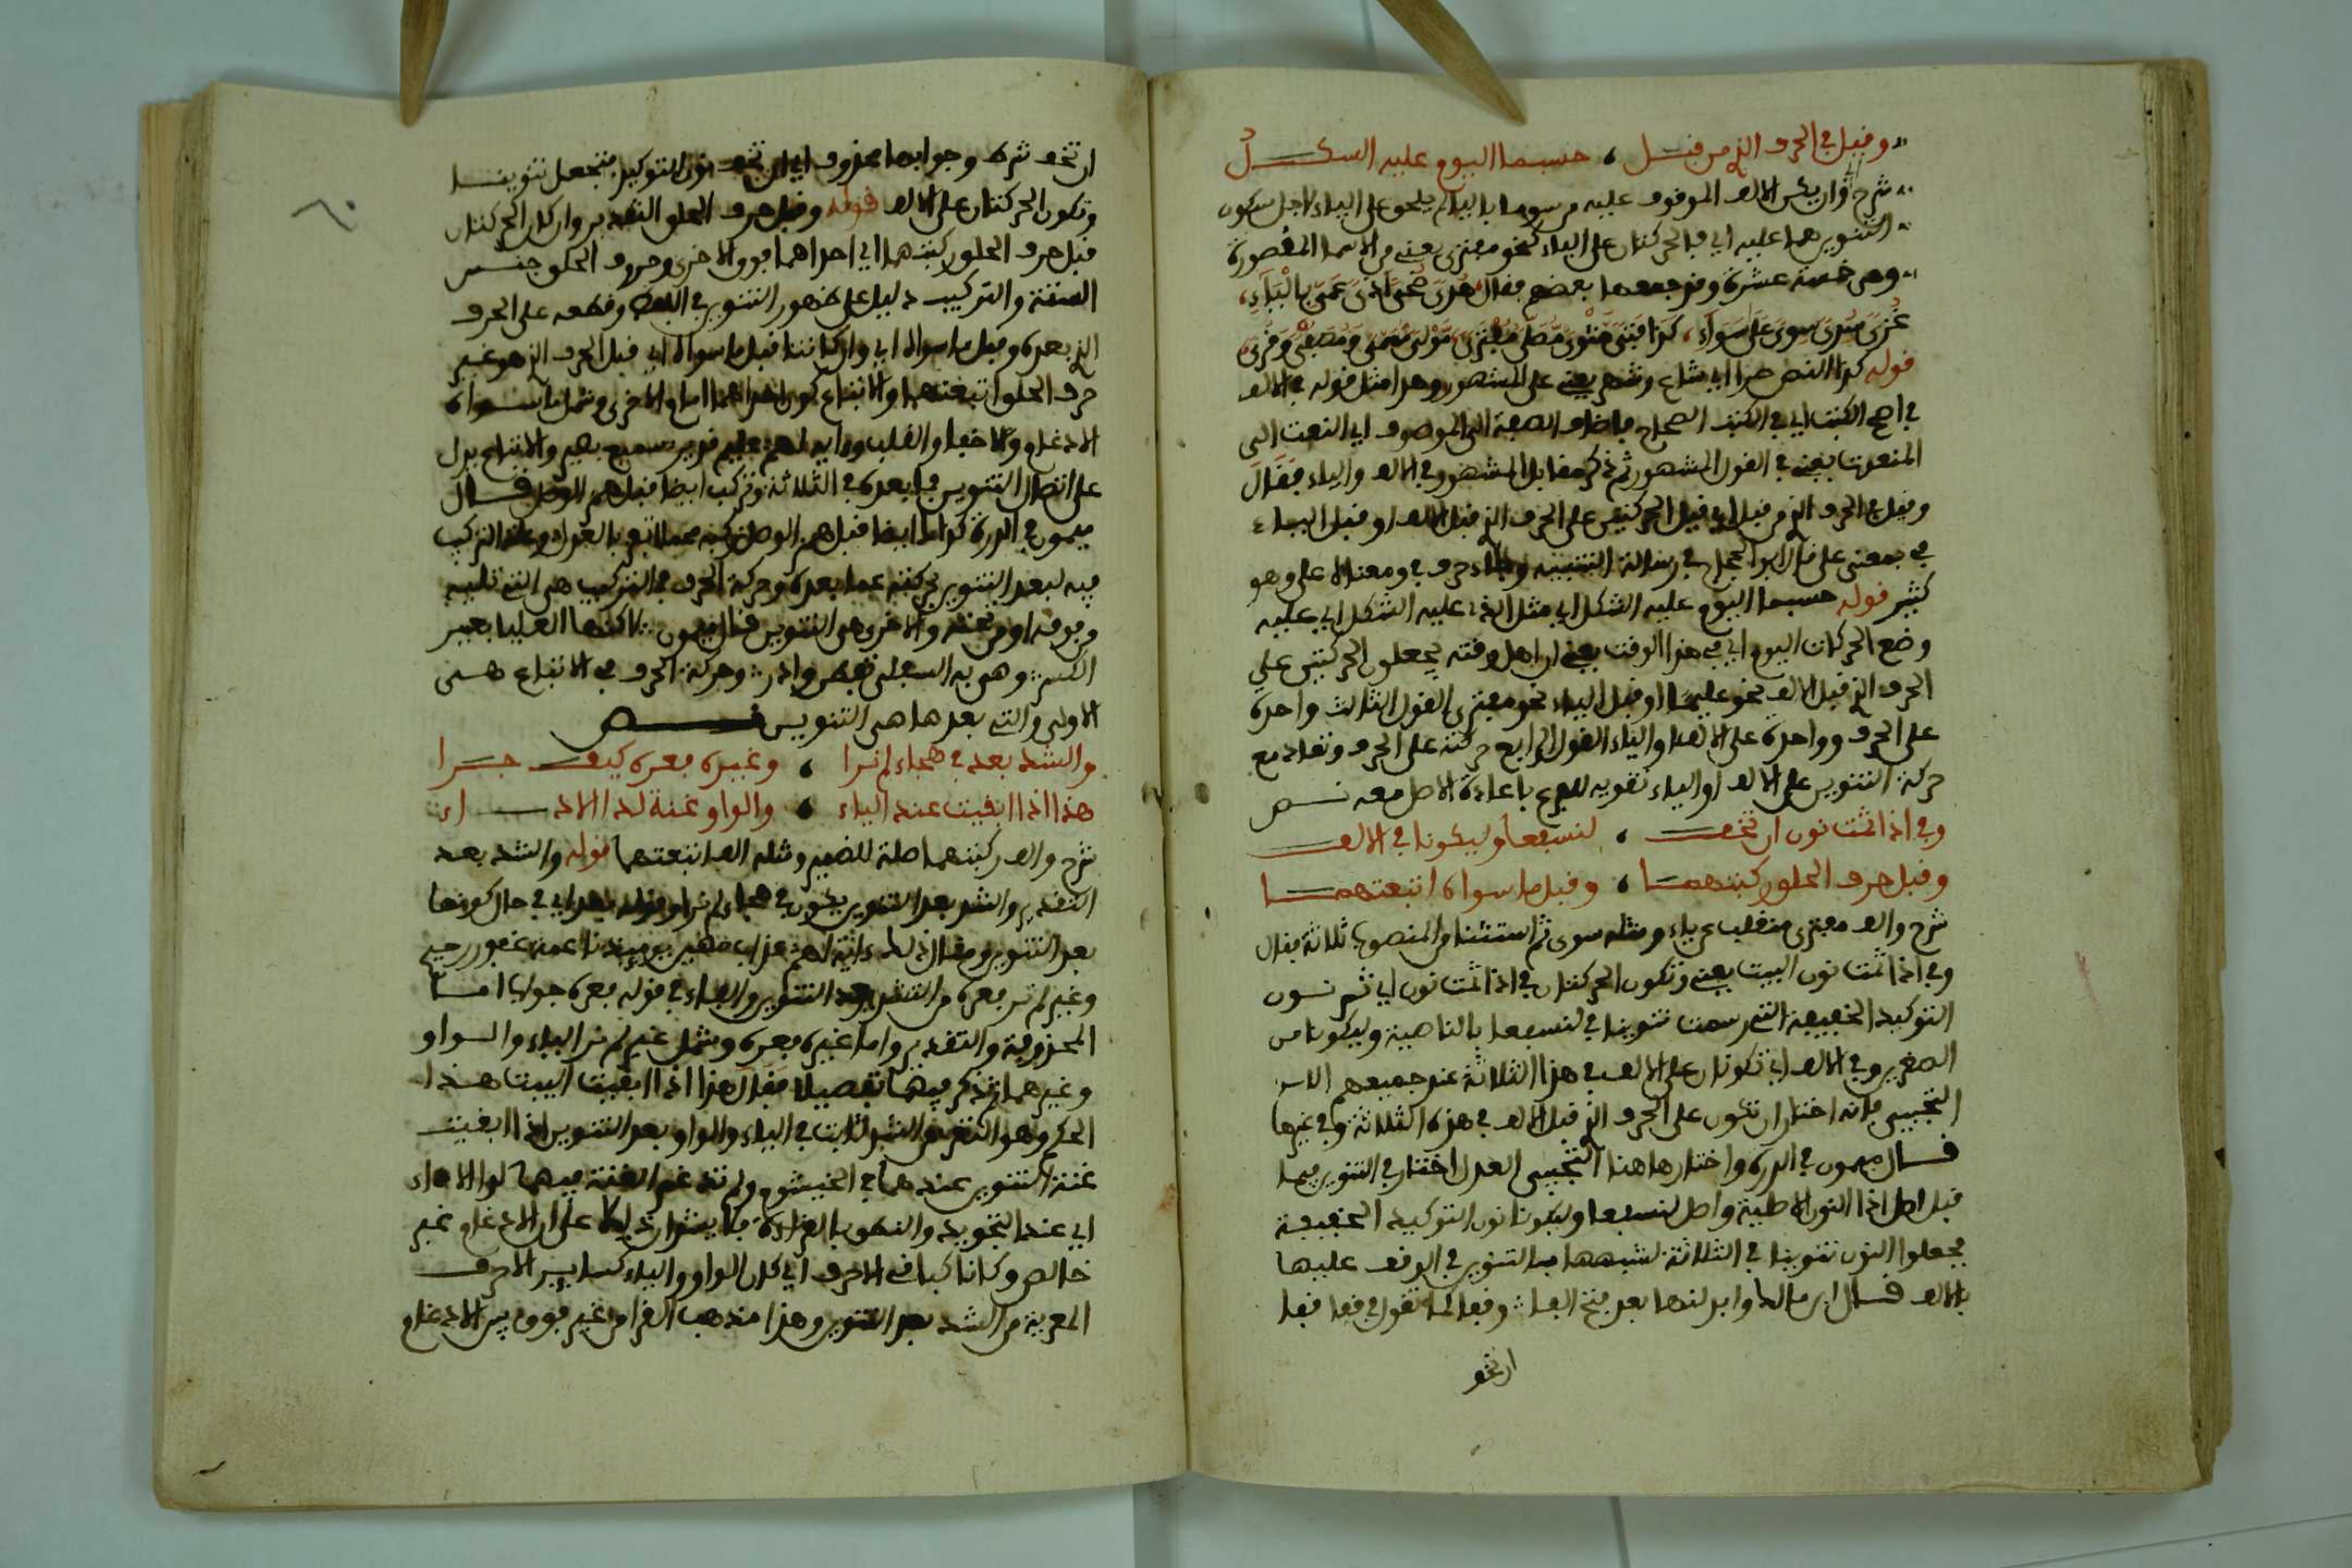 وقيل في الحرف الذي من قبل ، حسبما اليوم عليه الشكل
شرح وان يكن الالف الموقوف عليه مرسوما بالياء لم يلحق على الياء لاجل سكون
التنوين هما عليه اي فالحركتان على الياء نحو مفترى يعني من الاسما المقصورة
وهي خمسة عشرة وقد جمعها بعضهم فقال هدى ضحى اذى عمى بالياء ،
غزى سدى سوى على سواء ، كذا فتى مثوى مصلى مفترى مولى مسمى ومصفى وقرى
قوله كذا النص سرا اي شاع وشهر يعني على المشهور وهذا مثل قوله في الالف
في اصح الكتب اي في الكتب الصحاح فاضاف الصفة الى الموصوف اي النعت الى
المنعوت يعني في القول المشهور ثم ذكر مقابل المشهور في الالف والياء فقال
وقيل في الحرف الذي من قبل اي قيل الحركتين على الحرف الذي قبل الالف او قبل الياء
في بمعنى على قال ابن المجراد في رسالة التثنية وجاء حرف في ومعناه على وهو
كثير قوله حسبما اليوم عليه الشكل اي مثل الذي عليه الشكل اي عليه
وضع الحركات اليوم اي في هذا الوقت يعني ان اهل وقته يجعلون الحركتين على
الحرف الذي قبل الالف نحو عليما او قبل الياء نحو مفترى القول الثالث واحدة
على الحرف وواحدة على الالف او الياء القول الرابع حركة على الحرف وتعاد مع
حركة التنوين على الالف او الياء تقوية للفرع باعادة الاصل معه نص
وفي اذا ثمت نون ان تخف ، لنسفعا وليكونا في الالف
وقبل حرف الحلق ركبتهما ، وقبل ما سواه اتبعتهما
شرح والف مفترى منقلب عن ياء ومثله سوى ثم استثنا من المنصوب ثلاثة فقال
وفي اذا ثمت نون البيت يعني وتكون الحركتان في اذا ثمت نون اي ثم نون
التوكيد الخفيفة التي رسمت تنوينا في لنسفعا بالناصية وليكونا من
الصغرين وفي الالف اي تكونان على الالف في هذا الثلاثة عند جميعهم الا
التجيبي فانه اختار ان تكون على الحرف الذي قبل الالف في هذه الثلاثة وفي غيرها
قال ميمون في الدرة واختارها هنا التجيبي العدل اختار في التنوين فيما
قبل اصل اذا النون الاصلية واصل لنسفعا وليكونا نون التوكيد الخفيفة
فجعلوا النون تنوينا في الثلاثة لشبهها بالتنوين في الوقف عليها
بالالف قال ابن مالك وابدلنها بعد فتح الفا وقفا كما تقول في قفن قفا
ان تخف
ان تخف شرط وجوابها محذوف اي ان تخف نون التوكيد فتجعل تنوينا
وتكون الحركتان على الالف قوله وقبل حرف الحلق التقدير وان كان الحركتان
قبل حرف الحلق ركبتهما اي احداهما فوق الاخرى وحروف الحلق جنس
الستة والتركيب دليل على ظهور التنوين في اللفظ وقطعه على الحرف
الذي بعده وقبل ما سواه اي وان كانتا قبل ما سواه اي قبل الحرف الذي هو غير
حرف الحلق اتبعتهما والاتباع كون احداهما امام الاخرى وشمل ما سواه
الادغام والاخفا والقلب ورايه لهم عليم قدير سميع بصير والاتباع يدل
على اتصال التنوين بما بعده في الثلاثة وتركب ايضا قبل همز الوصل قال
ميمون في الدرة كذاك ايضا قبل همز الوصل ركبه محملا بقوبا لعدل وعلة التركيب
فيه لبعد التنوين بحركته عما بعده وحركة الحرف في التركيب هي التي تليه
من فوقه او من تحته والاخرى هي التنوين قال ميمون لاكنها العليا بغير
الكسر وهي به السفلى فخط وادر وحركة الحرف في الاتباع هي
الاولى والتي بعدها هي التنوين نص
والشد بعد في هجاء لم نرا ، وغيره فعره كيف جرا
هذا اذا ابقيت عند الياء ، والواو غنة لدا الاداء
شرح والف ركبتهما صلة للضمير ومثله الف اتبعتهما قوله والشد بعد
التقدير والشد بعد التنوين يكون في هجاء لم نرا وقوله بعد اي في حال كونها
بعد التنوين ومثال ذلك داية لهم عذاب مهين يوميذ ناعمة غفور رحيم
وغير لم نر فعره من الشد بعد التنوين والهاء في قوله فعره جواب اما
المحذوفة والتقدير واما غيره فعره وشمل غير لم نر الياء والواو
وغيرهما ثم ذكر فيهما تفصيلا فقال هذا اذا ابقيت البيت هذا
الحكم وهو التعري من الشد ثابت في الياء والواو بعد التنوين اذا ابقيت
غنة التنوين عندهما في الخيشوم ولم تدغم الغنة فيهما لدا الاداء
اي عند التجويد والنطق بالقراءة فلا يشدان دليلا على ان الادغام غير
خالص وكانا كباقي الاحرف اي كان الواو والياء كساير الاحرف
المعرية من الشد بعد التنوين وهذا مذهب القرا من غير فرق بين الادغام